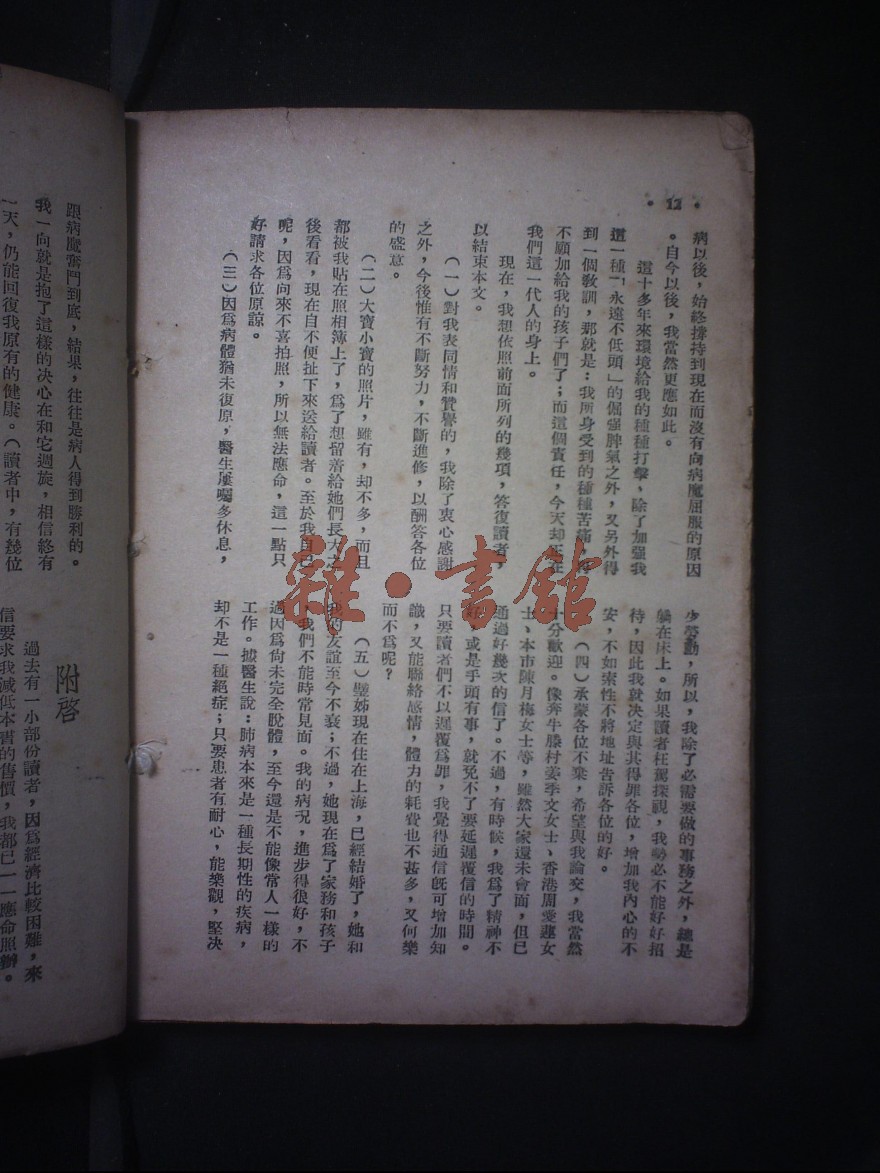 ・12・
病以後，始終撐持到現在而沒有向病魔屈服的原因
。自今以後，我當然更應如此。
這十多年來環境給我的種種打擊，除了加强我
這一種「永遠不低頭」的倔强脾氣之外，又另外得
到一個敎訓，那就是：我所身受到的種種苦痛，再
不願加給我的孩子們了；而這個責任，今天却正在
我們這一代人的身上。
現在，我想依照前面所列的幾項，答復讀者，
以結束本文。
（一）對我表同情和贊譽的，我除了衷心感謝
之外，今後惟有不斷努力，不斷進修，以酬答各位
的盛意。
（二）大寶小寶的照片，雖有，却不多，而且
都被我貼在照相簿上了，爲了想留着給她們長大之
後看看，現在自不便扯下來送給讀者。至於我自己
呢，因爲向來不喜拍照，所以無法應命，這一點只
好請求各位原諒。
（三）因爲病體猶未復原，醫生屢囑多休息，
少勞動，所以，我除了必需要做的事務之外，總是
躺在床上。如果讀者枉駕探視，我勢必不能好好招
待，因此我就决定與其得罪各位，增加我內心的不
安，不如索性不將地址告訴各位的好。
（四）承蒙各位不棄，希望與我論交，我當然
十分歡迎。像奔牛滕村姜季文女士、香港周愛蓮女
士、本市陳月梅女士等，雖然大家還未會面，但已
通過好幾次的信了。不過，有時候，我爲了精神不
好，或是手頭有事，就免不了要延遲覆信的時間。
只要讀者們不以遲覆爲罪，我覺得通信旣可增加知
識，又能聯絡感情，體力的耗費也不甚多，又何樂
而不爲呢？
（五）璧姊現在住在上海，已經結婚了，她和
我的友誼至今不衰；不過，她現在爲了家務和孩子
，我們不能時常見面。我的病况，進步得很好，不
過因爲尙未完全脫體，至今還是不能像常人一樣的
工作。據醫生說：肺病本來是一種長期性的疾病，
却不是一種絕症；只要患者有耐心，能樂觀，堅决
跟病魔奮鬥到底，結果，往往是病人得到勝利的。
我一向就是抱了這樣的决心在和它週旋，相信終有
一天，仍能回復我原有的健康。（讀者中，有幾位
附啓
過去有一小部份讀者，因爲經濟比較困難，來
信要求我減低本書的售價，我都已一一應命照辦。
雜・書館